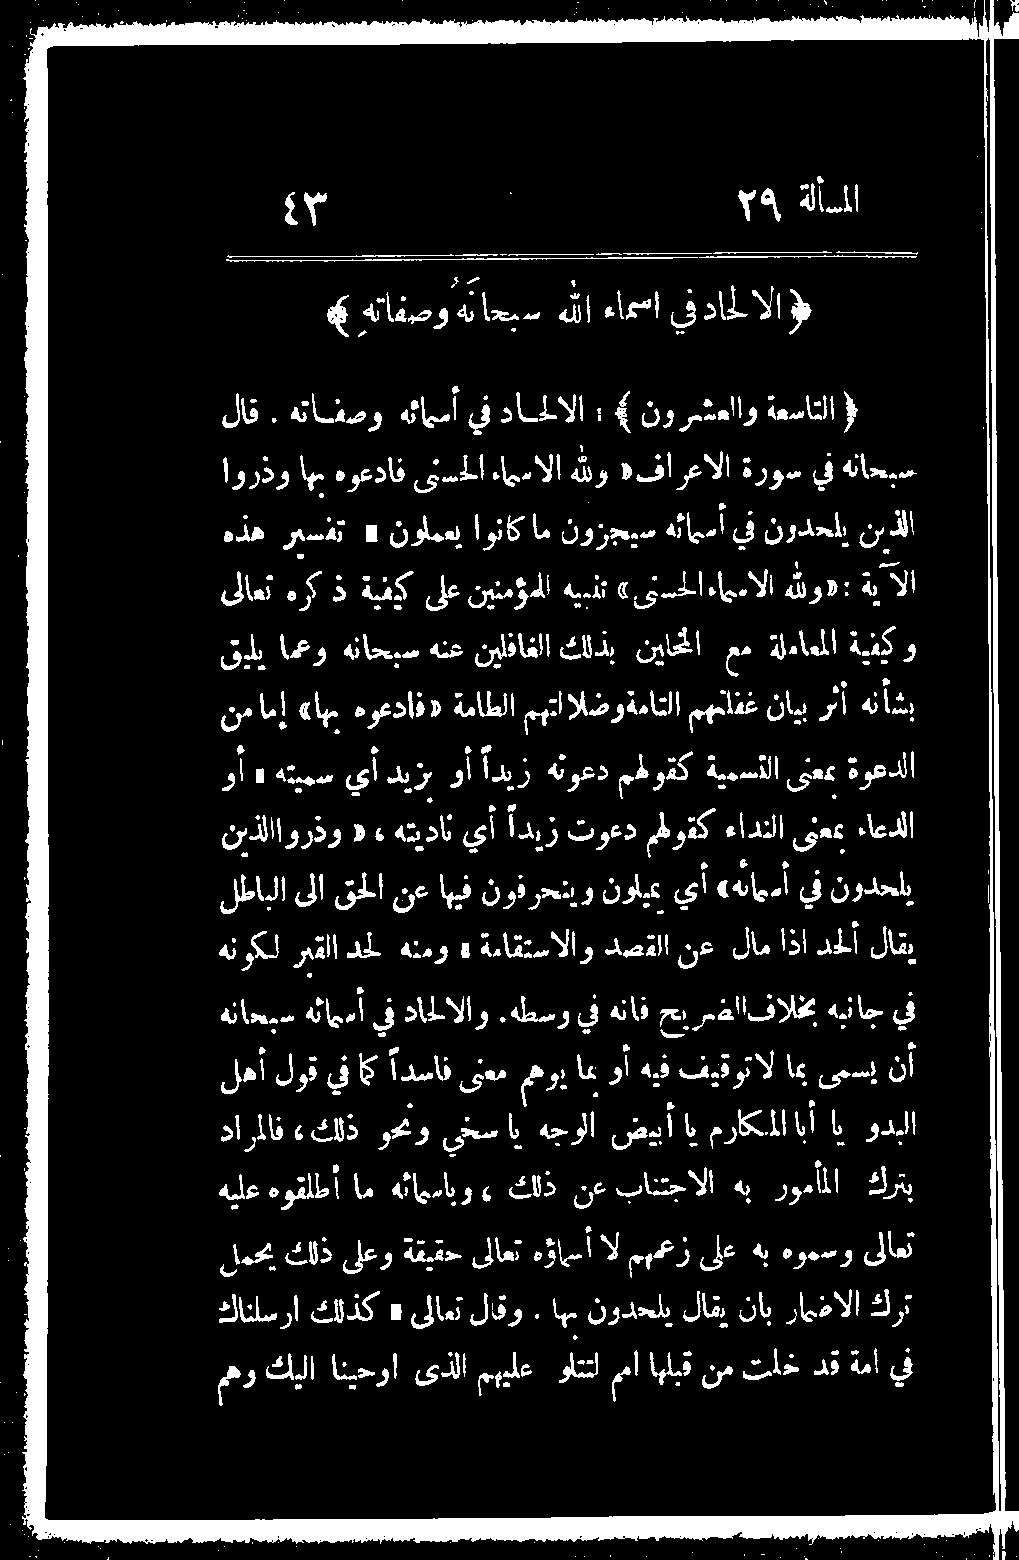 المسألة ٢٩ ٤٣
﴿ الالحاد في اسماء الله سبحانَهُ وصفاتهِ ﴾
﴿ التاسعة والعشرون ﴾ : الالحاد في أسمائه وصفاته . قال
سبحانه في سورة الاعراف « ولله الاسماء الحسنى فادعوه بها وذروا
الذين يلحدون في أسمائه سيجزون ما كانوا يعملون » تفسير هذه
الآية : « ولله الاسماء الحسنى » تنبيه للمؤمنين على كيفية ذكره تعالى
وكيفية المعاملة مع المخلين بذلك الغافلين عنه سبحانه وعما يليق
بشأنه أثر بيان غفلتهم التامة وضلالتهم الطامة « فادعوه بها » إما من
الدعوة بمعنى التسمية كقولهم دعوته زيداً أو بزيد أي سميته ، أو
الدعاء بمعنى النداء كقولهم دعوت زيداً أي ناديته ، « وذروا الذين
يلحدون في أسمائه » أي يميلون وينحرفون فيها عن الحق الى الباطل
يقال ألحد اذا مال عن القصد والاستقامة ، ومنه لحد القبر لكونه
في جانبه بخلاف الضريح فانه في وسطه . والالحاد في أسمائه سبحانه
أن يسمى بما لا توقيف فيه أو بما يوهم معنى فاسداً كما في قول أهل
البدو يا أبا المكارم يا أبيض الوجه يا سخي ونحو ذلك ، فالمراد
بترك المأمور به الاجتناب عن ذلك ، وباسمائه ما أطلقوه عليه
تعالى وسموه به على زعمهم لا أسماؤه تعالى حقيقة وعلى ذلك يحمل
ترك الاضمار بان يقال يلحدون بها . وقال تعالى « كذلك ارسلناك
في امة قد خلت من قبلها امم لتتلو عليهم الذى اوحينا اليك وهم